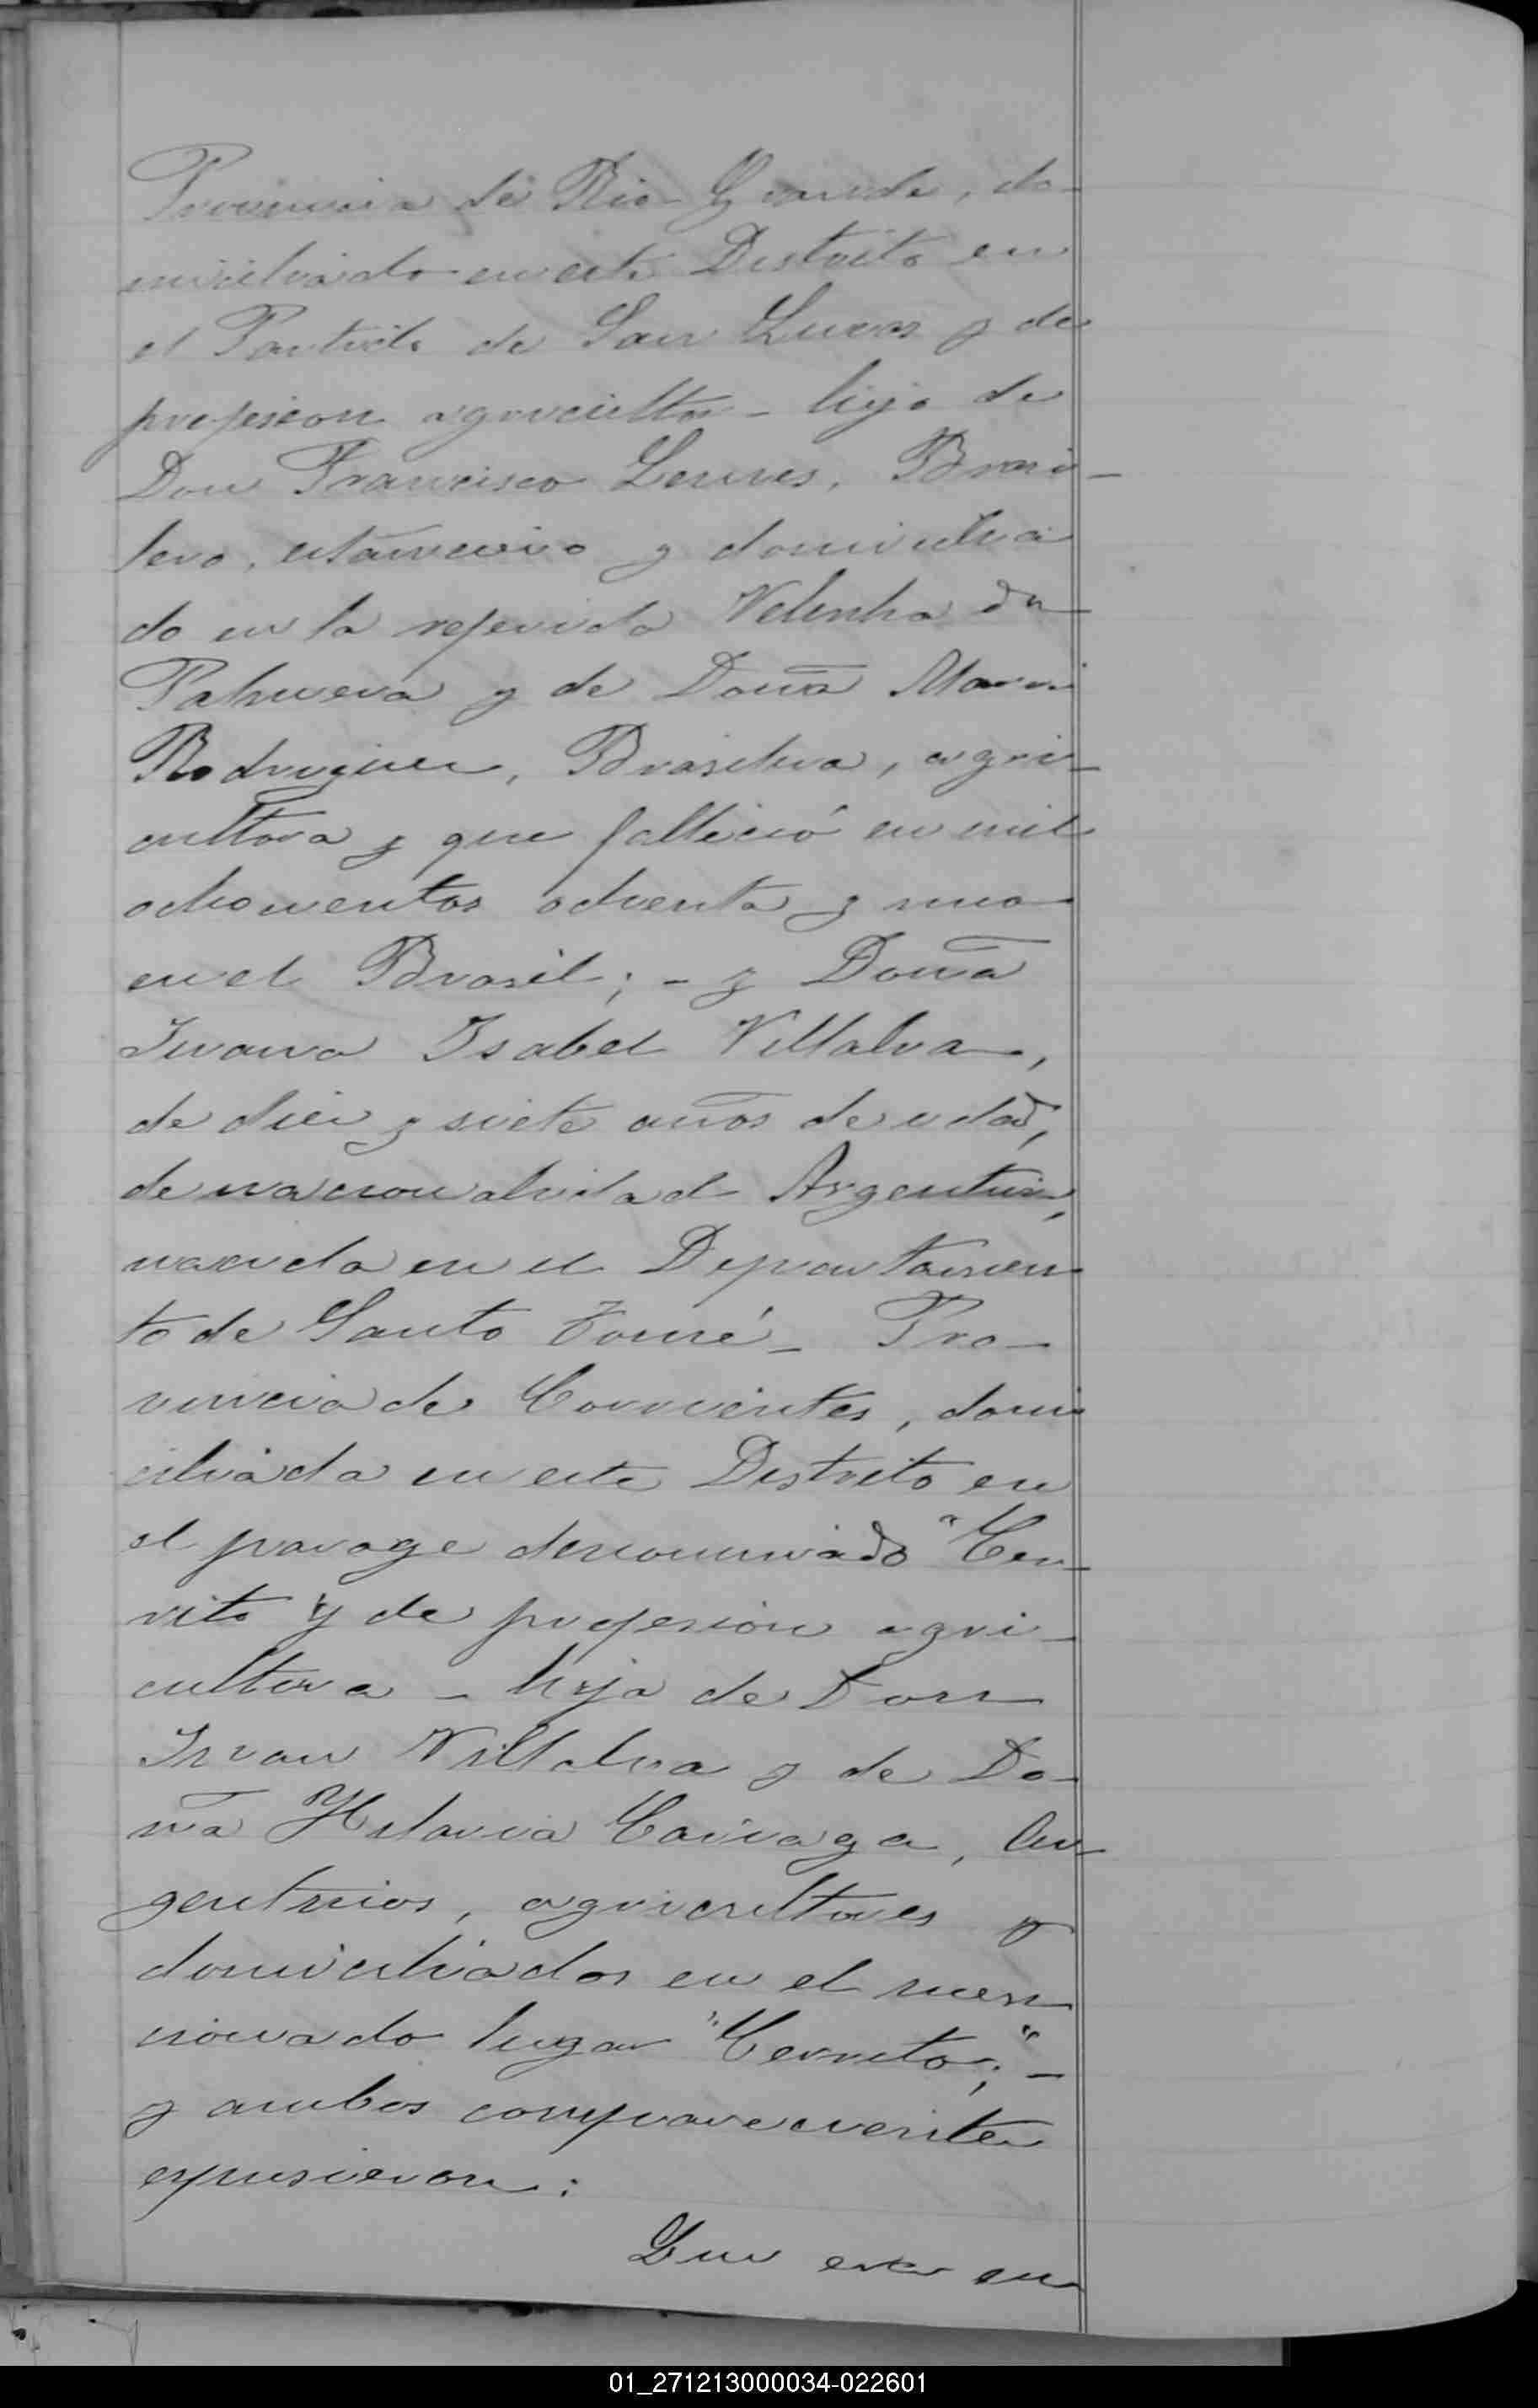 Provincia de Rio Grande, do-
miciliado en este Distrito en
el Partido de San Lucas y de
profesion agricultor - hijo de
Don Francisco Lemes, Brasi-
lero, estanciero y domicilia
do en la referida
Palmera y de Doña Maria
Rodriguez, Brasilera, agri-
cultora y que falleció en mil
ochocientos ochenta y uno
en el Brasil; - y Doña
Juana Isabel Villalva,
de diez y siete años de edad,
de nacionalidad Argentina,
nacida en el Departamen
to de Santo Tomé - Pro-
vincia de Corrientes, domi
ciliada en este Distrito en
el parage denominado "Cer-
rito" y de profesion agri-
cultora - hija de Don
Juan Villalva y de Do-
ña Hilaria Cairaga, Ar-
gentinos, agricultores y
domiciliados en el men
cionado lugar "Cerrito"; -
y ambos comparecientes
expusieron:
Que era su
01_271213000034-022601